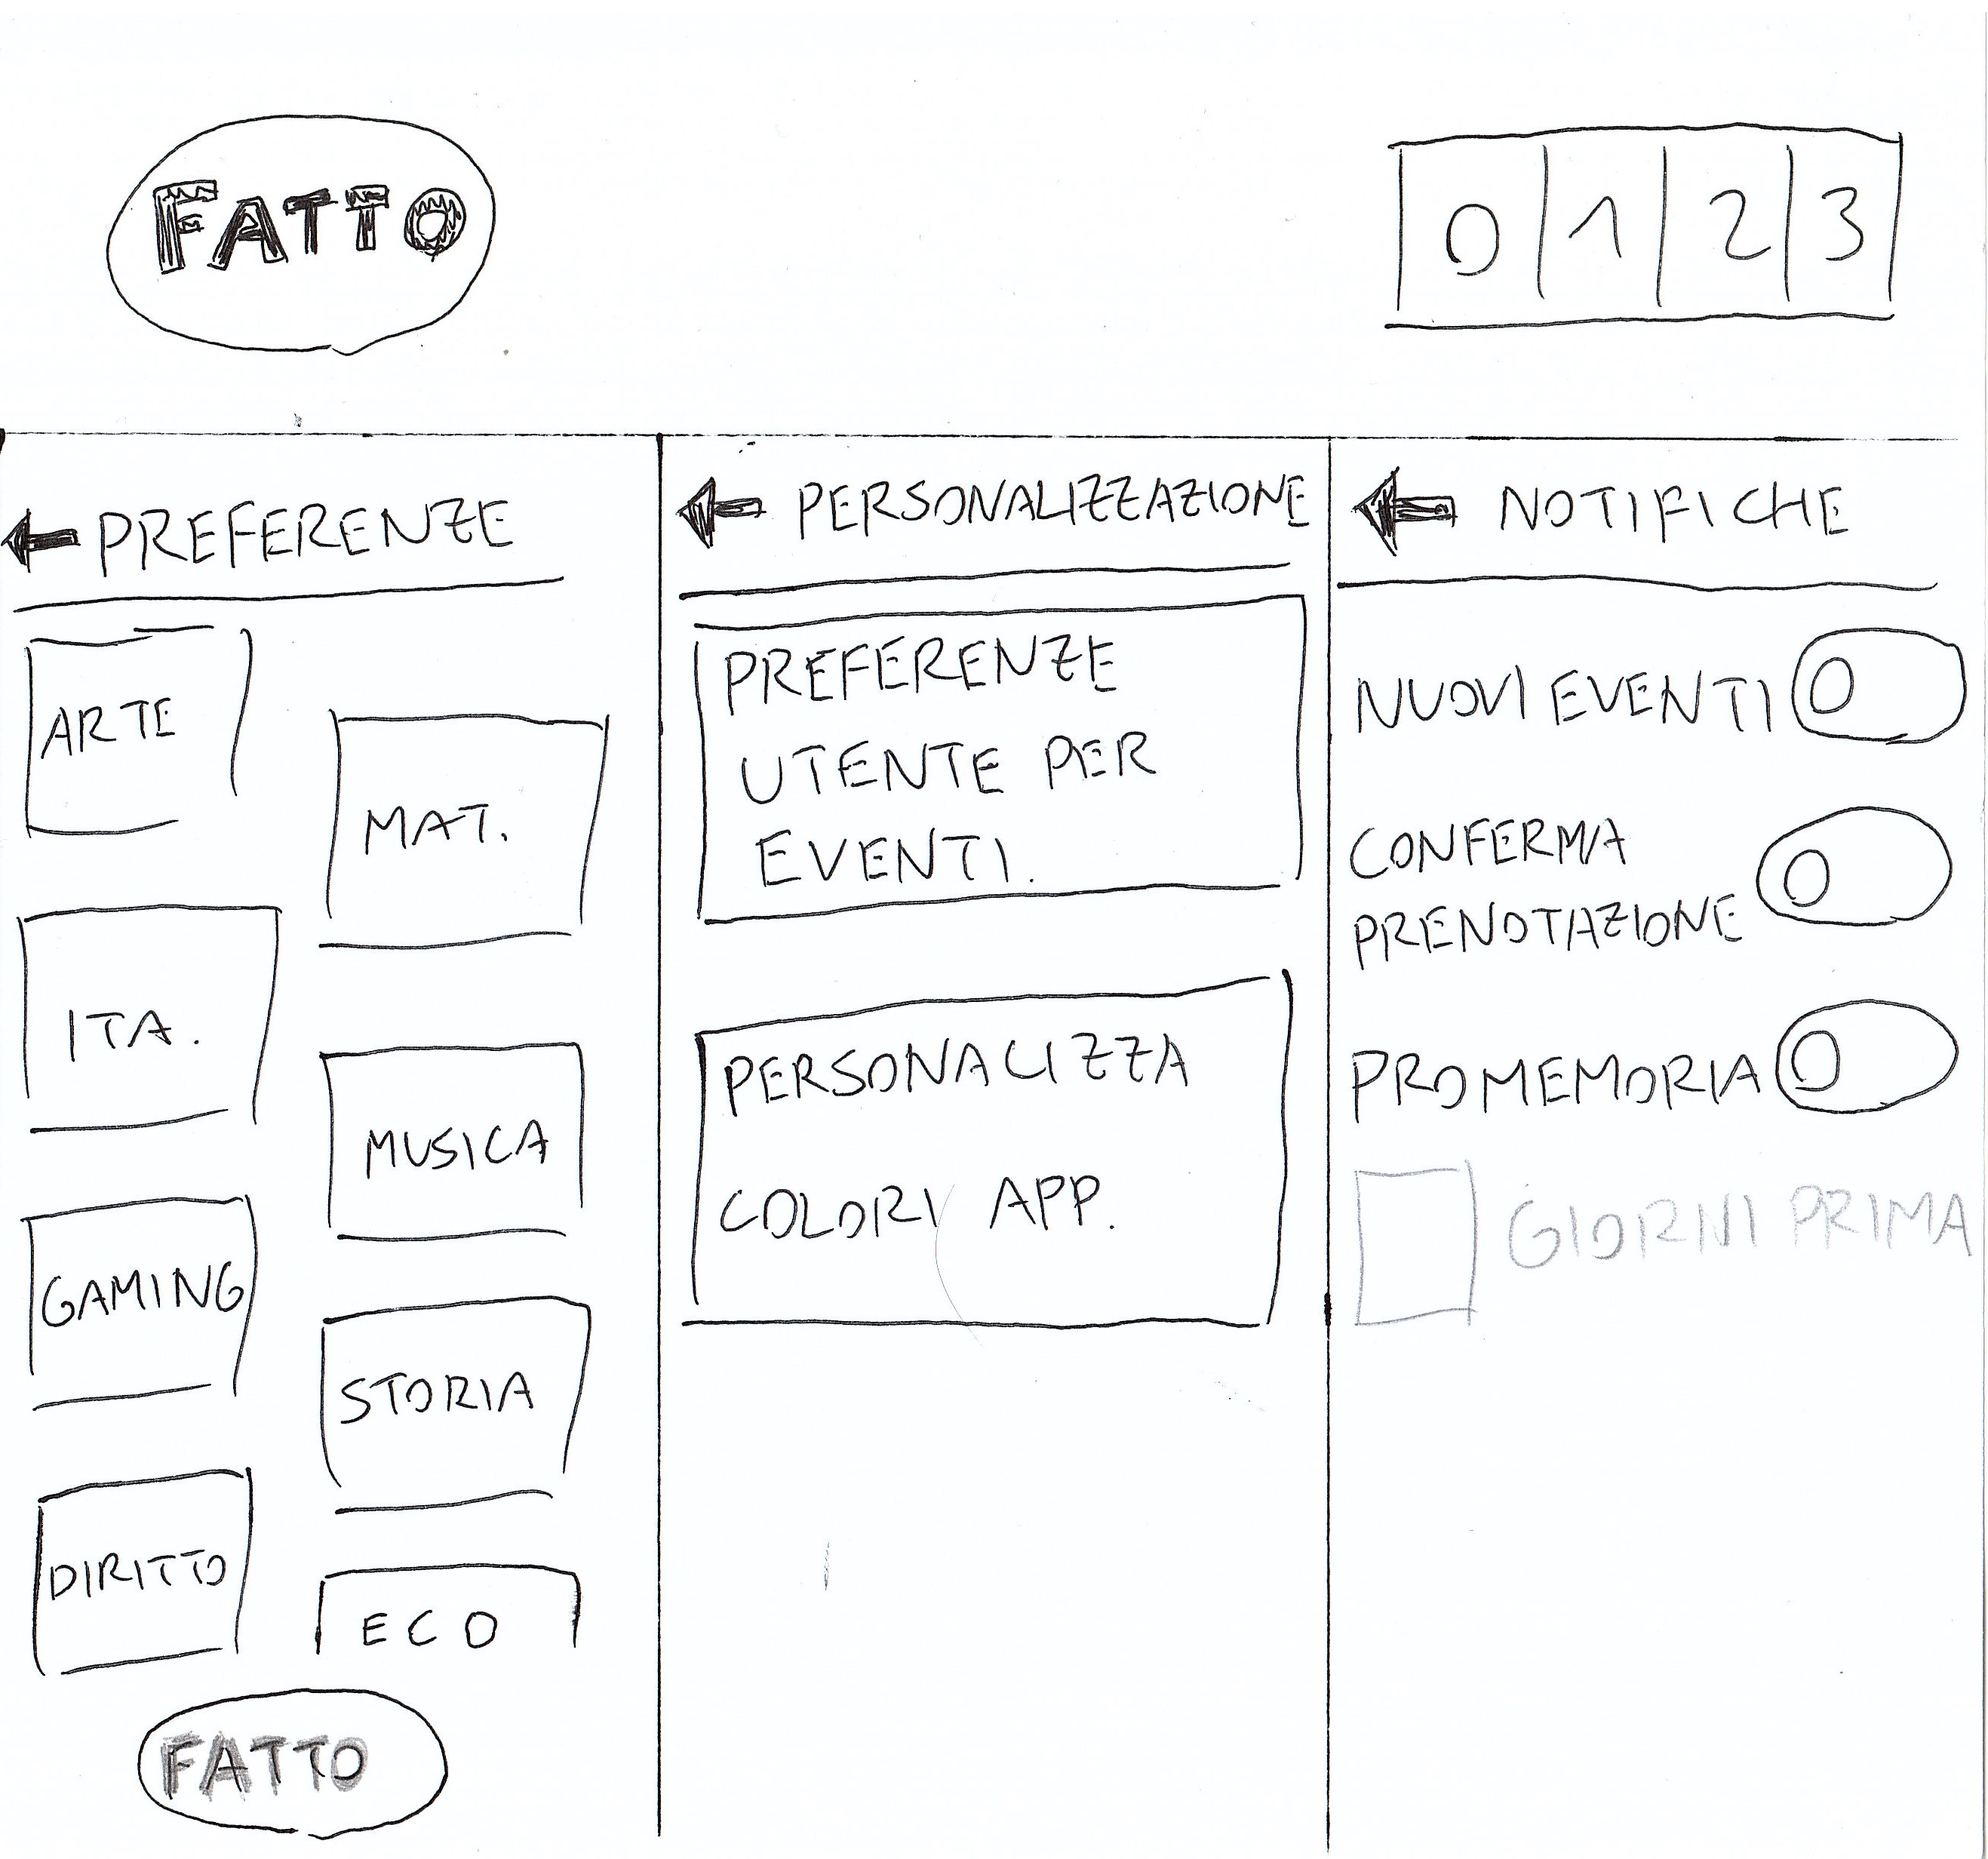 FATTO
0 1 2 3
PREFERENZE
ARTE
MAT.
ITA.
MUSICA
GAMING
STORIA
DIRITTO
ECO
FATTO
PERSONALIZZAZIONE
PREFERENZE
UTENTE PER
EVENTI.
PERSONALIZZA
COLORI APP.
NOTIFICHE
NUOVI EVENTI
CONFERMA
PRENOTAZIONE
PROMEMORIA
GIORNI PRIMA